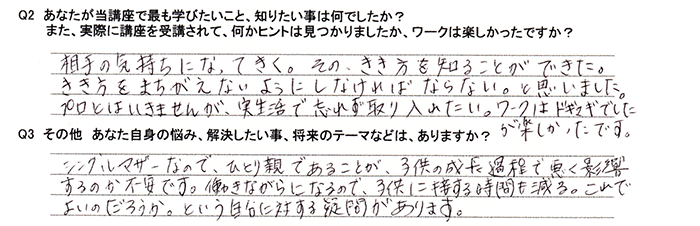 Q2 あなたが当講座で最も学びたいこと、知りたい事は何でしたか？
また、実際に講座を受講されて、何かヒントは見つかりましたか、ワークは楽しかったですか？
相手の気持ちになってきく。その、きき方を知ることができた。
きき方をまちがえないようにしなければならない。と思いました。
プロとはいきませんが、実生活で忘れず取り入れたい。ワークはドギマギでした
が楽しかったです。
Q3 その他 あなた自身の悩み、解決したい事、将来のテーマなどは、ありますか？
シングルマザーなので、ひとり親であることが、子供の成長過程で悪く影響
するのか不安です。働きながらになるので、子供に接する時間も減る。これで
よいのだろうか。という自分に対する疑問があります。